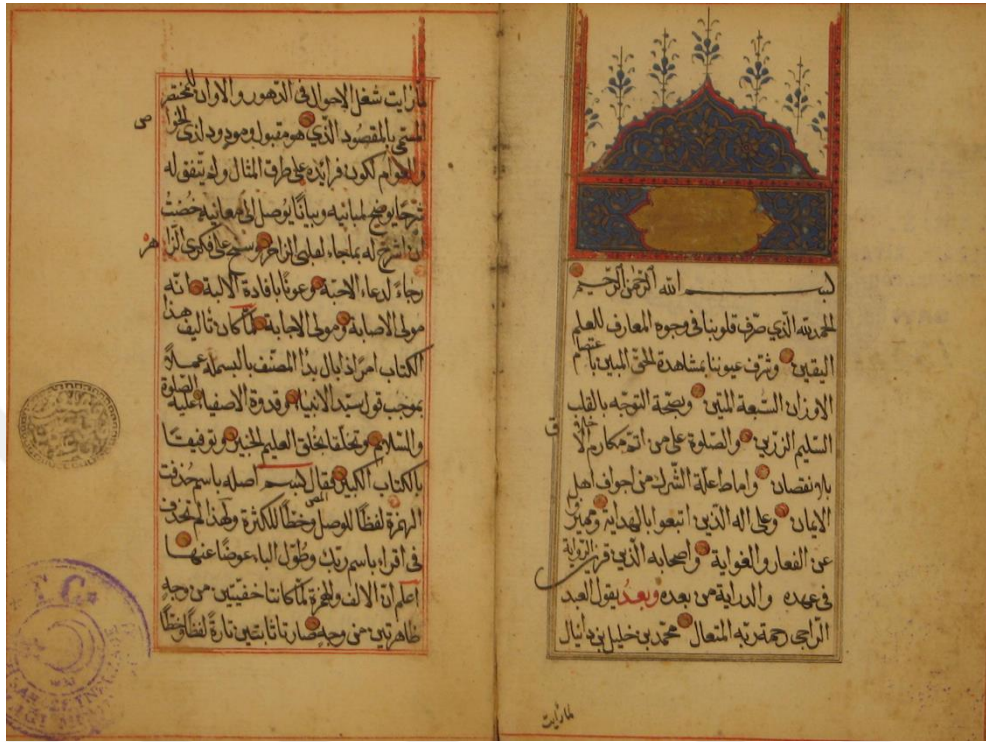 بسم الله الرحمن الرحيم
الحمد لله الذي صرف قلوبنا في وجوه المعارف للعلم
اليقين وشرف عيوننا بمشاهدة الحق المبين باعتصام
الاوزان السبعة المتين وبصحة التوجه بالقلب
السليم الرزين والصلوة على من اتم مكارم الاخلاق
بلا نقصان واماط علة الشرك من اجواف اهل
الايمان وعلى اله الذين اتبعوا بالهداية
عن والغواية واصحابه الذين الرواية
في عهده والدراية من بعده وبعد يقول العبد
الراجي رحمة ربه المتعال محمد بن خليل بن دانيال
لما رايت
لما رايت شغل الاحوال في الدهور والاوان للمختصر
المسمى بالمقصود الذي هو مقبول ومودود لدى الخواص
والعوام لكون فرايده على طرف المثال ولم يتفق له
شرحا يوضح لمبانيه وبيانا يوصل الى معانيه خضت
ان اشرح له بما جاء لقلبي الزاجر وسنح على فكري
رجاء لدعاء الاحبة وعونا بافادة الالبة انه
مولى الاصابة ومولى الاجابة لما كان تاليف هذا
الكتاب امرا ذا بال بدا المصنف بالبسملة عملا
بموجب قول سيد الانبياء وقدوة الاصفياء عليه الصلوة
والسلام وتخلقا بخلق العليم الخبير وتوفيقا
بالكتاب الكبير فقال بسم اصله باسم حذفت
الهمزة لفظا للوصل وخطا للكثرة ولهذا لم تحذف
في اقرا باسم ربك وطول الباء عوضا عنها
اعلم ان الالف والهمزة لما كانتا خفيتين من وجه
ظاهرتين من وجه صارتا ثابتتين تارة لفظا وخطا
T.C.